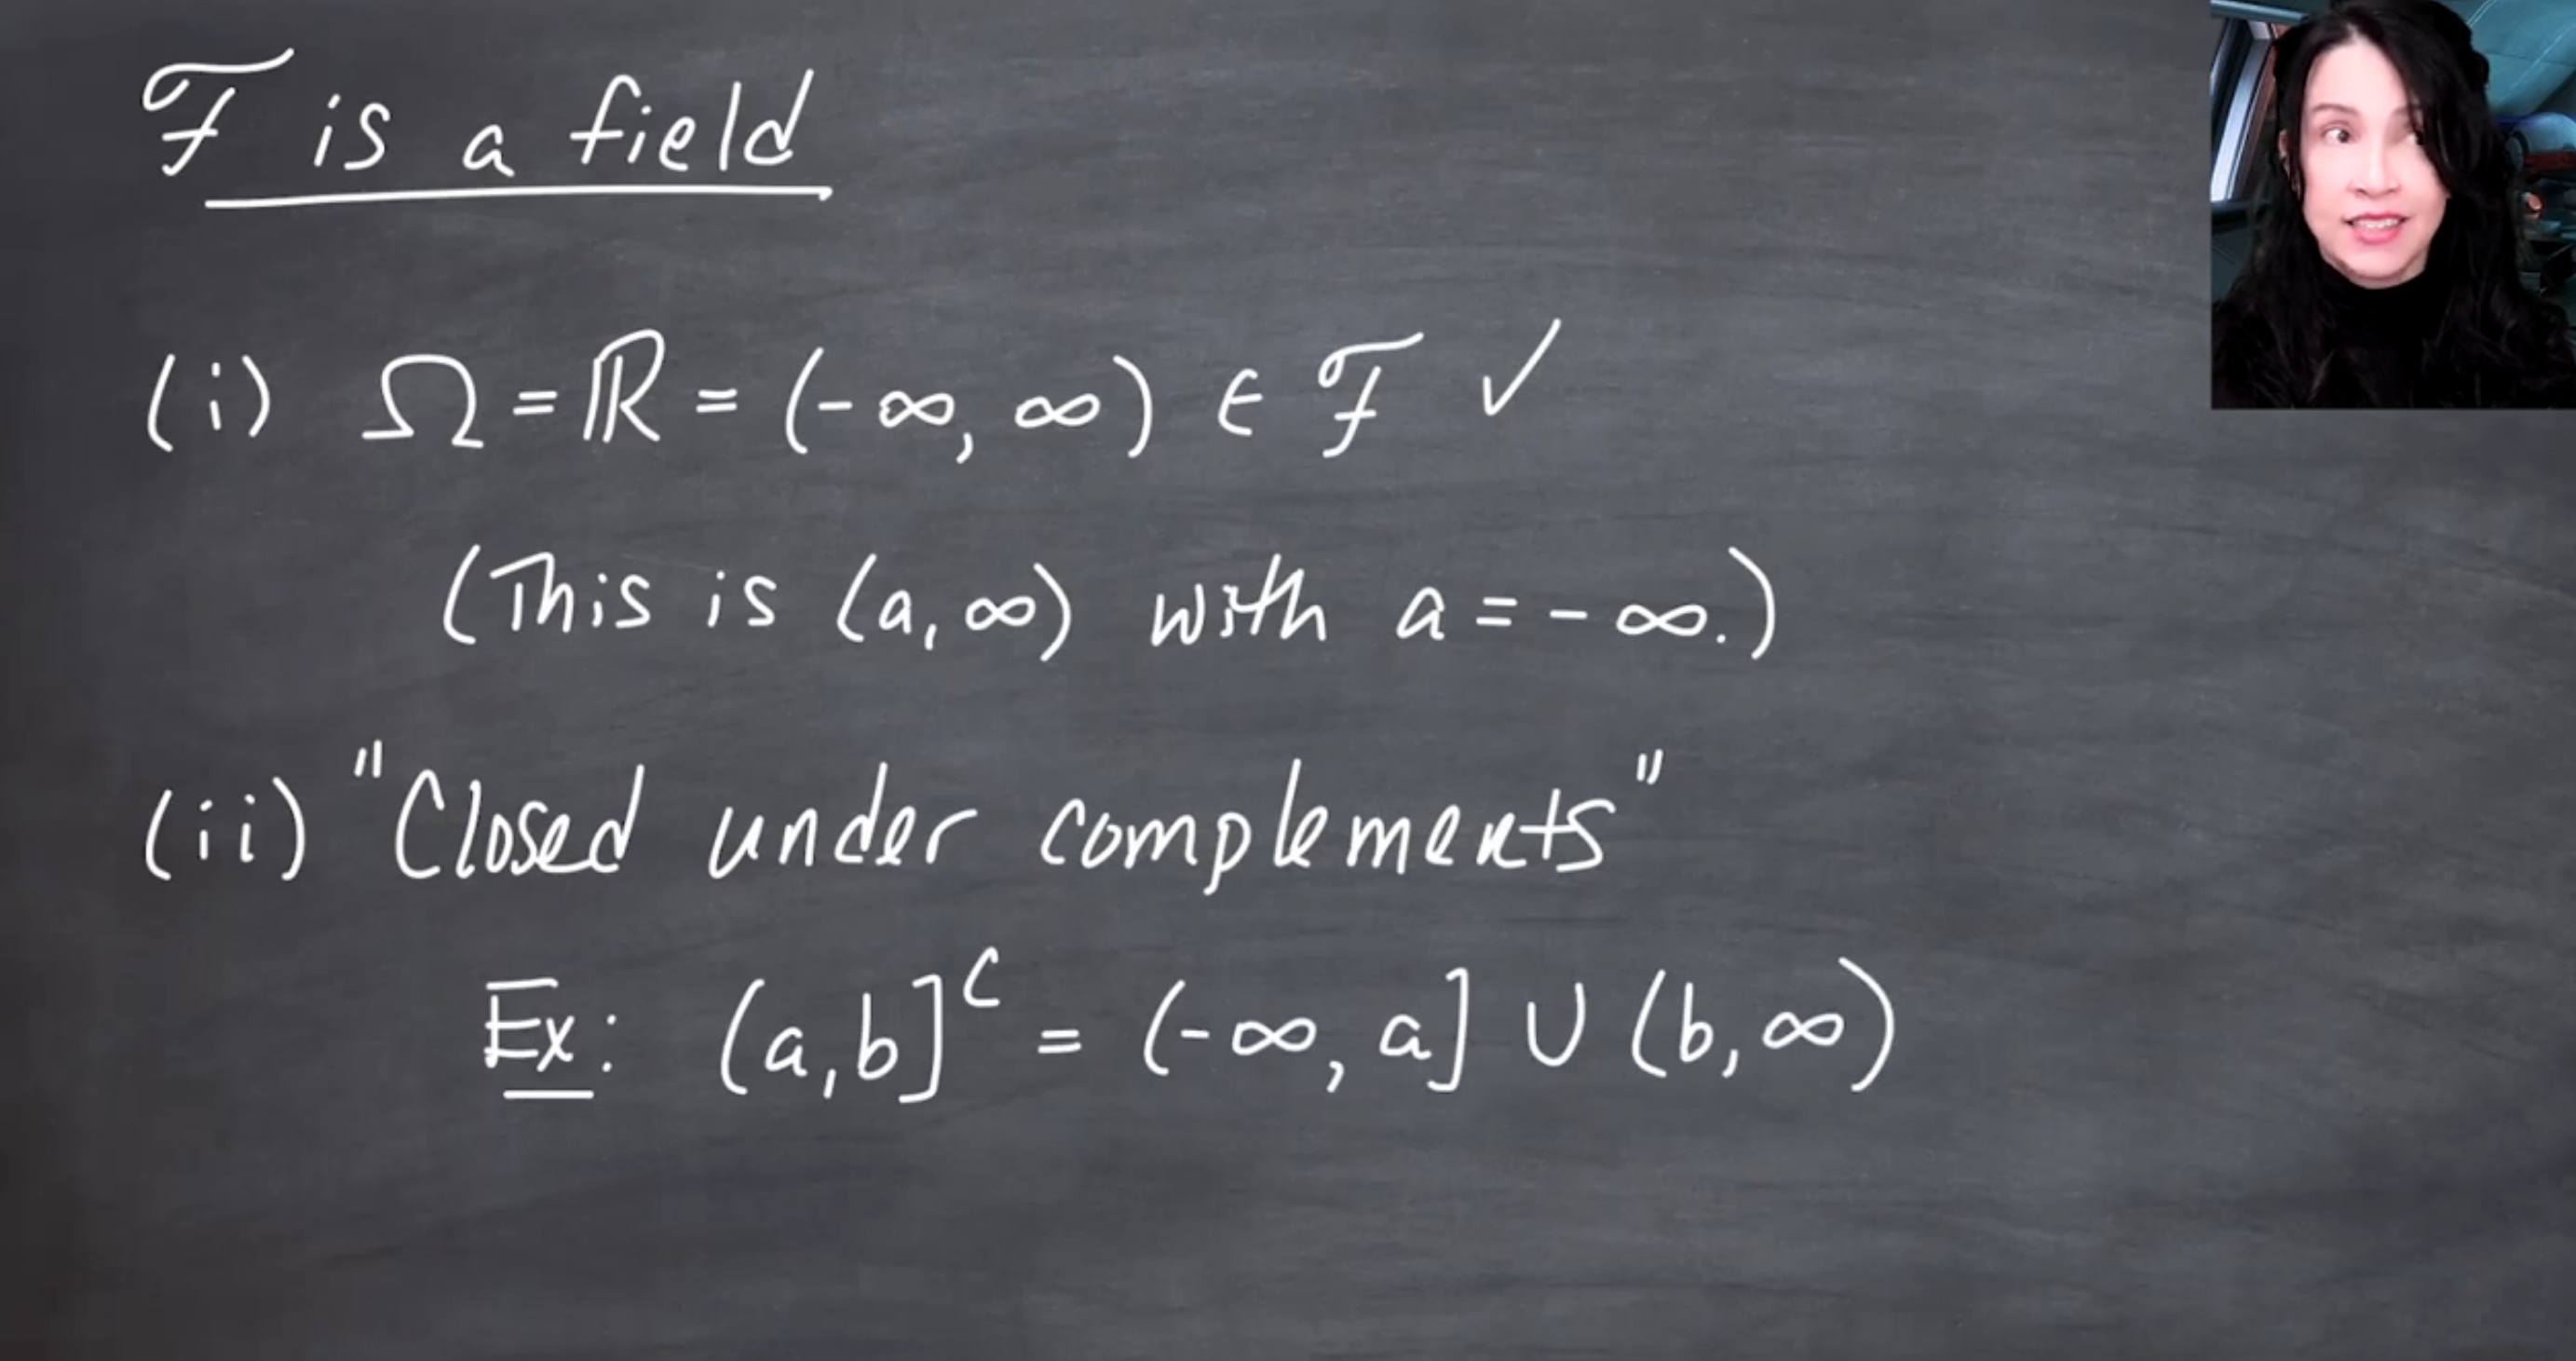 ℱ is a field
(i) Ω = ℝ = (-∞, ∞) ∈ ℱ ✓
(This is (a, ∞) with a = -∞.)
(ii) "Closed under complements"
Ex: (a, b]ᶜ = (-∞, a] ∪ (b, ∞)